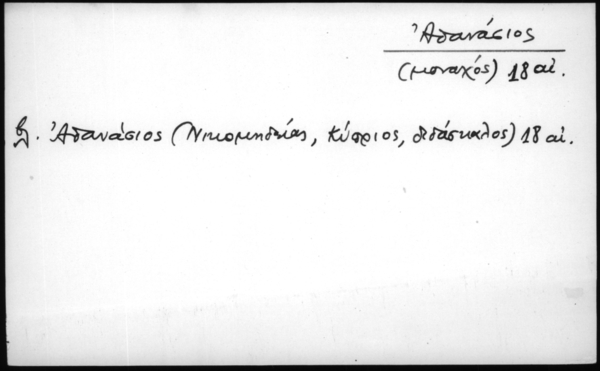 Ἀθανάσιος
(μοναχός) 18 αἰ.
βλ. Ἀθανάσιος (Νικομηδείας, Κύπριος, διδάσκαλος) 18 αἰ.